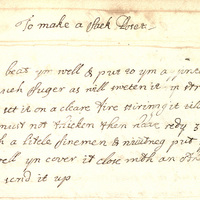 To make a Sack Posset
beat ym well & put to ym a pinte
much suger as will sweeten it in
set it on a cleare fire stiring it
must not thicken then have redy
a little sinemen & nutmeg put
well yn cover it close with an
send it up